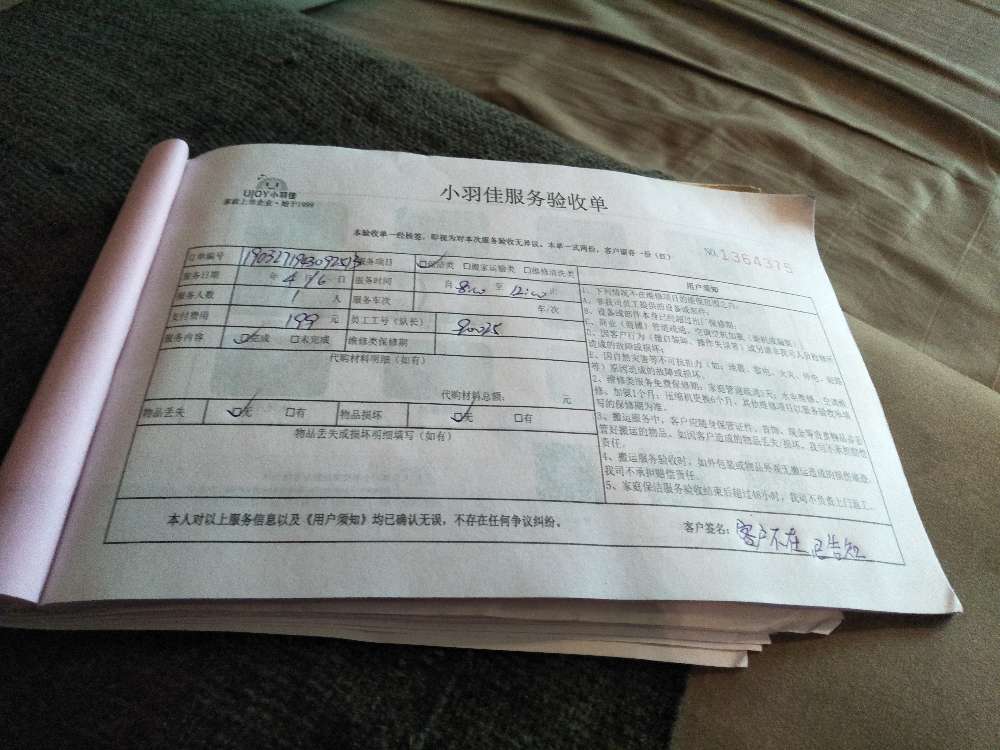 UJOY小羽佳
家政上市企业·始于1999
小羽佳服务验收单
本验收单一经核签，即视为对本次服务验收无异议。本单一式两份，客户留存一份（红）
NO.1364375
订单编号 服务项目 保洁类 搬家运输类 维修清洗类
服务日期 年 4 月 6 日 服务时间 自 8:00 至 12:00 止
服务人数 1 人 服务车次 车/次
支付费用 199 元 员工工号（队长） 90025
服务内容 完成 未完成 维修类保修期
代购材料明细（如有）
代购材料总额： 元
物品丢失 无 有 物品损坏 无 有
物品丢失或损坏明细填写（如有）
用户须知
1、下列情况不在维修项目的维保范围之内：
A、非我司员工提供的设备或部件；
B、设备或部件本身已经超过出厂保修期；
C、商业（商铺）管道疏通、空调空机加氨
D、因客户行为（擅自装卸、操作失误等）或另请非我司人员检修所
造成的故障或损坏；
E、因自然灾害等不可抗拒力（如：地震、雷电、火灾、停电、短路
等）原因造成的故障或损坏。
2、维修类服务免费保修期：家庭管道疏通7天；水电维修、空调维
修、加氨1个月；压缩机更换6个月，其他维修项目以服务验收单填
写的保修期为准。
3、搬运服务中，客户应随身保管证件、首饰、现金等贵重物品并妥
管好搬运的物品。如因客户造成的物品丢失/损坏，我司不承担赔偿
责任。
4、搬运服务验收时，如外包装或物品外观无搬运造成的损伤痕迹，
我司不承担赔偿责任。
5、家庭保洁服务验收结束后超过48小时，我司不负责上门返工。
本人对以上服务信息以及《用户须知》均已确认无误，不存在任何争议纠纷。
客户签名： 客户不在 已告知